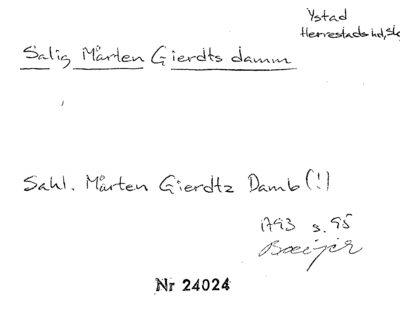 Ystad
Herrestads hd,
Salig Mårten Gierdts damm
Sahl. Mårten Gierdtz Damb (!)
1793 s. 95
Nr 24024